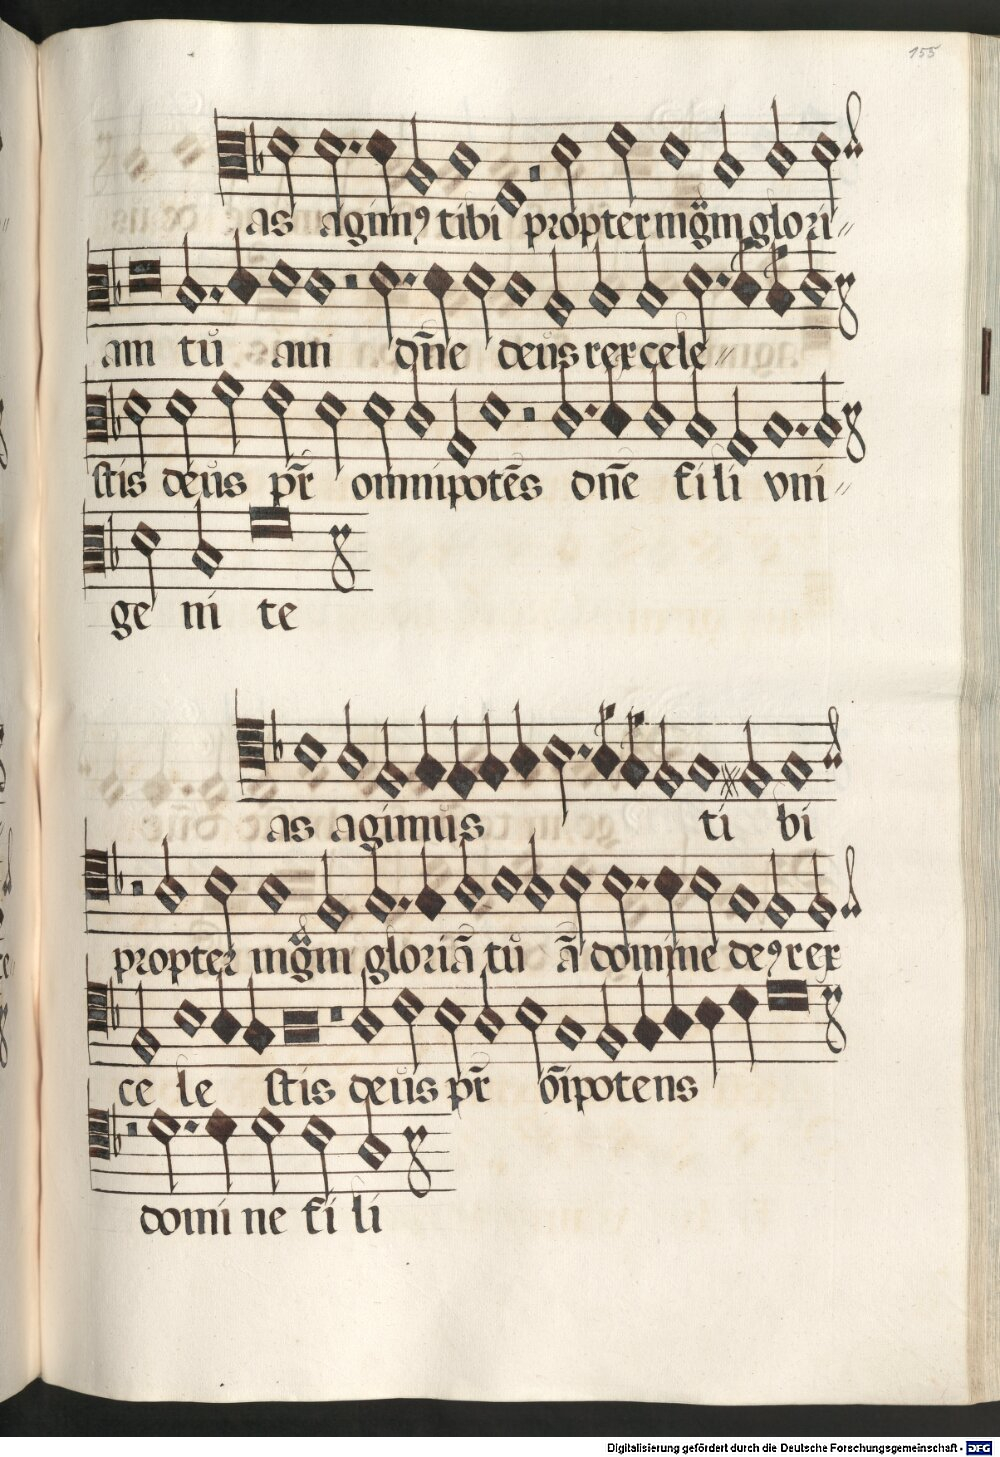 155
as agim⁹ tibi propter mg̃m glori〃
am tu am dñe deus rex cele〃
stis deus pr̃ omnipotẽs dñe fili vni〃
ge ni te
as agimus ti bi
propter mg̃m gloriã tu ã domine de⁹ rex
ce le stis deus pr̃ õipotens
domi ne fi li
Digitalisierung gefördert durch die Deutsche Forschungsgemeinschaft - DFG